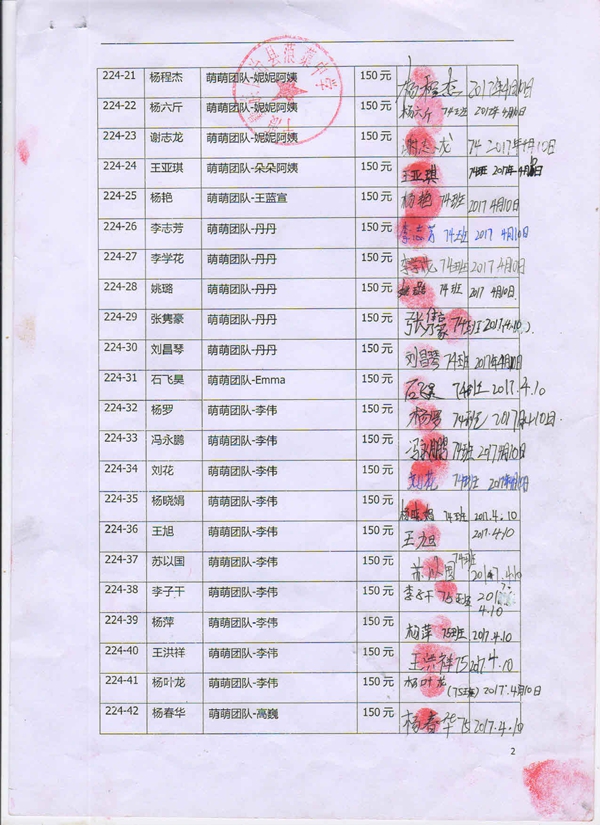 224-21 杨程杰 萌萌团队-妮妮阿姨 150 元 杨程杰
224-22 杨六斤 萌萌团队-妮妮阿姨 150 元 杨六斤 74班 2017年4月10日
224-23 谢志龙 萌萌团队-妮妮阿姨 150 元 谢志龙 74 2017年4月10日
224-24 王亚琪 萌萌团队-朵朵阿姨 150 元 王亚琪 74班 2017年4月10日
224-25 杨艳 萌萌团队-王蓝宣 150 元 杨艳 74班 2017 4月10日
224-26 李志芳 萌萌团队-丹丹 150 元 李志芳 74班 2017 4月10日
224-27 李学花 萌萌团队-丹丹 150 元 李学花 74班 2017 4月10日
224-28 姚璐 萌萌团队-丹丹 150 元 姚璐 74班 2017 4月10日
224-29 张隽豪 萌萌团队-丹丹 150 元 74班 2017.4.10
224-30 刘昌琴 萌萌团队-丹丹 150 元 刘昌琴 74班 2017年4月10日
224-31 石飞昊 萌萌团队-Emma 150 元 石飞昊 74班 2017.4.10
224-32 杨罗 萌萌团队-李伟 150 元 杨罗 74班 2017年4月10日
224-33 冯永鹏 萌萌团队-李伟 150 元 冯永鹏 74班 2017 4月10日
224-34 刘花 萌萌团队-李伟 150 元 刘花 74班 2017年4月10日
224-35 杨晓娟 萌萌团队-李伟 150 元 杨晓娟 74班 2017.4.10
224-36 王旭 萌萌团队-李伟 150 元 王旭 2017.4.10
224-37 苏以国 萌萌团队-李伟 150 元 苏以国 74班 2017.4.10
224-38 李子干 萌萌团队-李伟 150 元 李子干 75班 2017. 4.10
224-39 杨萍 萌萌团队-李伟 150 元 杨萍 75班 2017.4.10
224-40 王洪祥 萌萌团队-李伟 150 元 王洪祥 75 2017 4.10
224-41 杨叶龙 萌萌团队-李伟 150 元 杨叶龙 (75班) 2017.4月10日
224-42 杨春华 萌萌团队-高巍 150 元 杨春华 75 2017.4.10
2